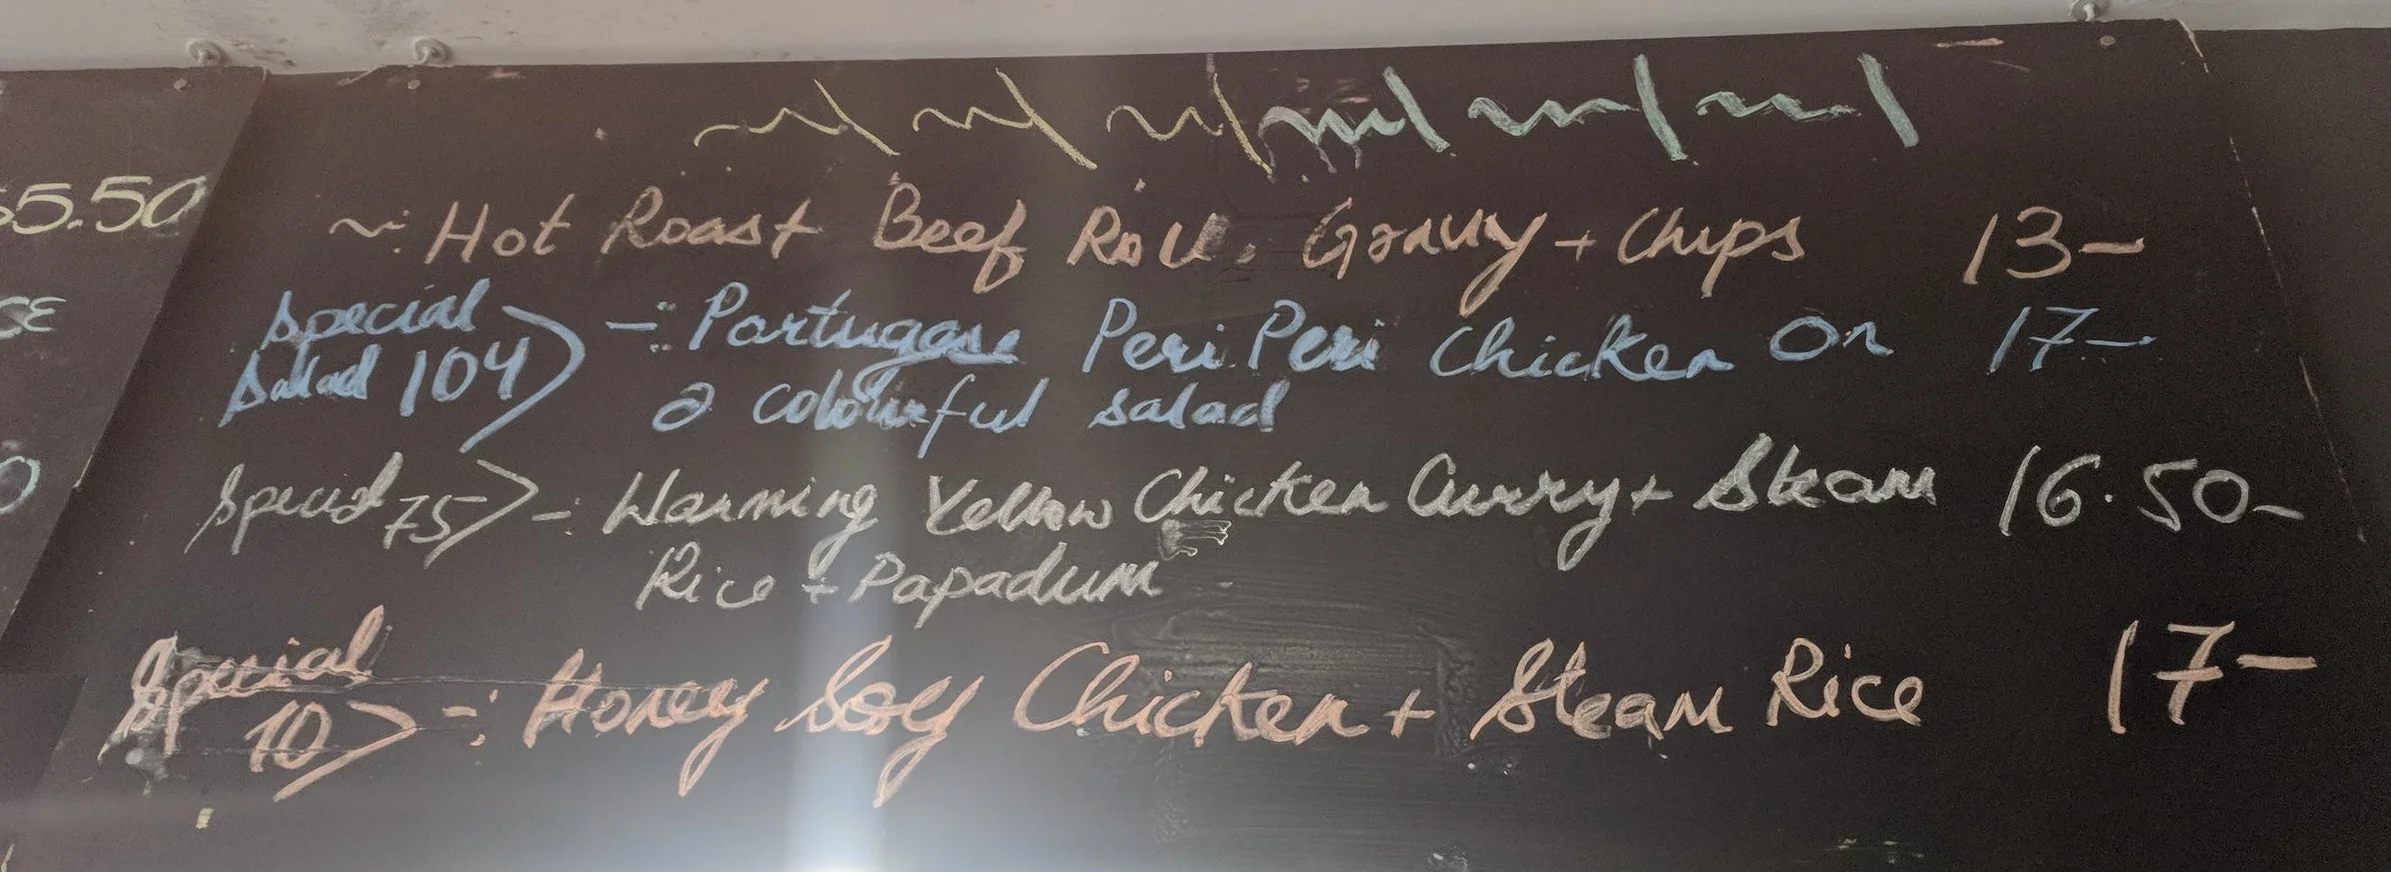 $5.50
CE
0
~: Hot Roast Beef Roll. Gravy + Chips 13-
Special Salad 104> -: Portugese Peri Peri Chicken On 17-
a colourful salad
Special 75> -: Warming Yellow Chicken Curry + Steam 16.50-
Rice + Papadum
Special 10> -: Honey Soy Chicken + Steam Rice 17-